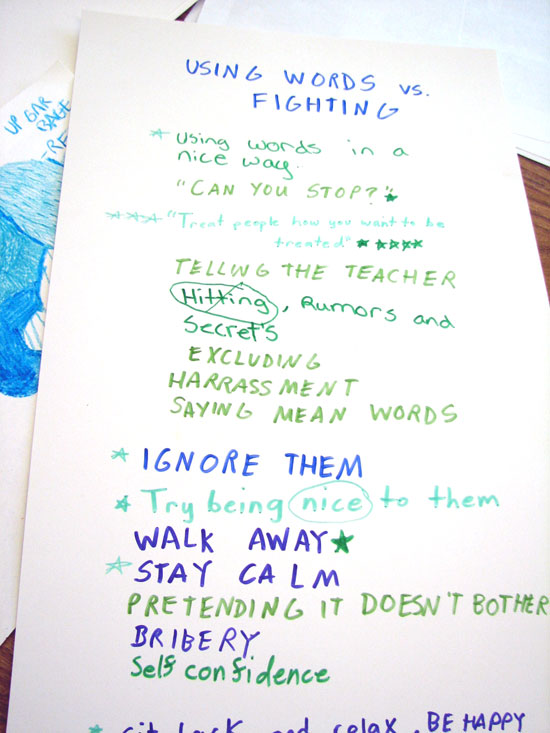 UP GAR
BAGE
USING WORDS vs.
FIGHTING
* using words in a
nice way.
"CAN YOU STOP?"★
*** "Treat people how you want to be
treated" ★★★★
TELLING THE TEACHER
Hitting, Rumors and
Secret's
EXCLUDING
HARRASSMENT
SAYING MEAN WORDS
* IGNORE THEM
* Try being nice to them
WALK AWAY★
* STAY CALM
PRETENDING IT DOESN'T BOTHER
BRIBERY
Self confidence
* sit back and relax, BE HAPPY